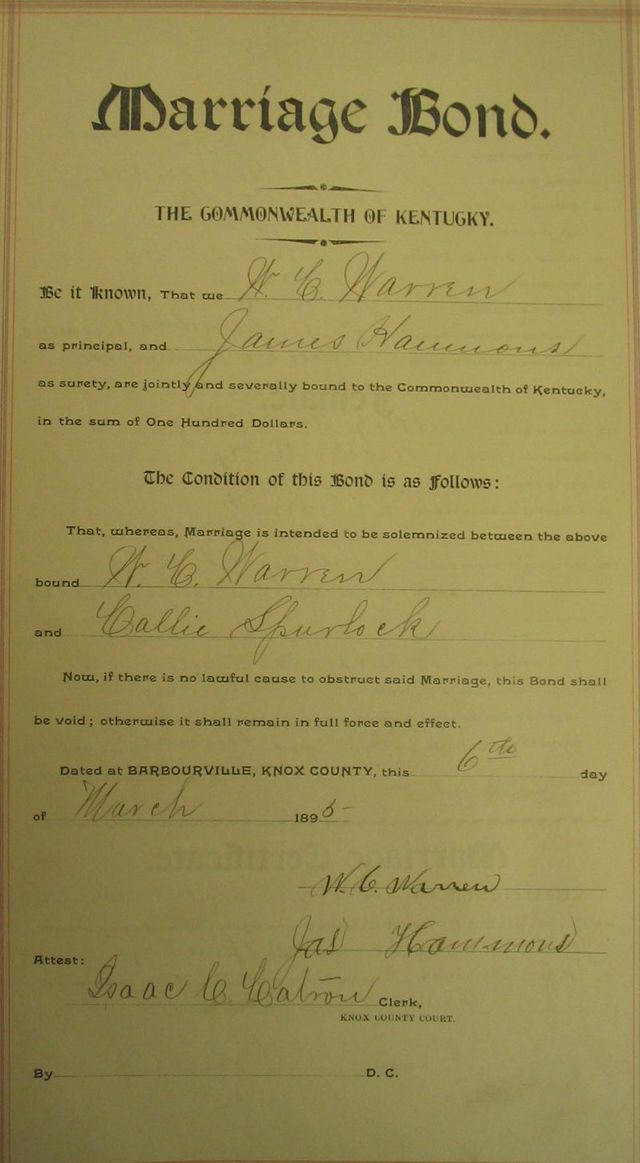 Marriage Bond.
THE COMMONWEALTH OF KENTUCKY.
Be it Known, That we W. C. Warren
as principal, and James Hammons
as surety, are jointly and severally bound to the Commonwealth of Kentucky,
in the sum of One Hundred Dollars.
The Condition of this Bond is as Follows:
That, whereas, Marriage is intended to be solemnized between the above
bound W. C. Warren
and Callie Spurlock
Now, if there is no lawful cause to obstruct said Marriage, this Bond shall
be void; otherwise it shall remain in full force and effect.
Dated at BARBOURVILLE, KNOX COUNTY, this 6th day
of March 1895
W. C. Warren
Jas Hammons
Attest:
Isaac C. Catron Clerk,
KNOX COUNTY COURT.
By D. C.